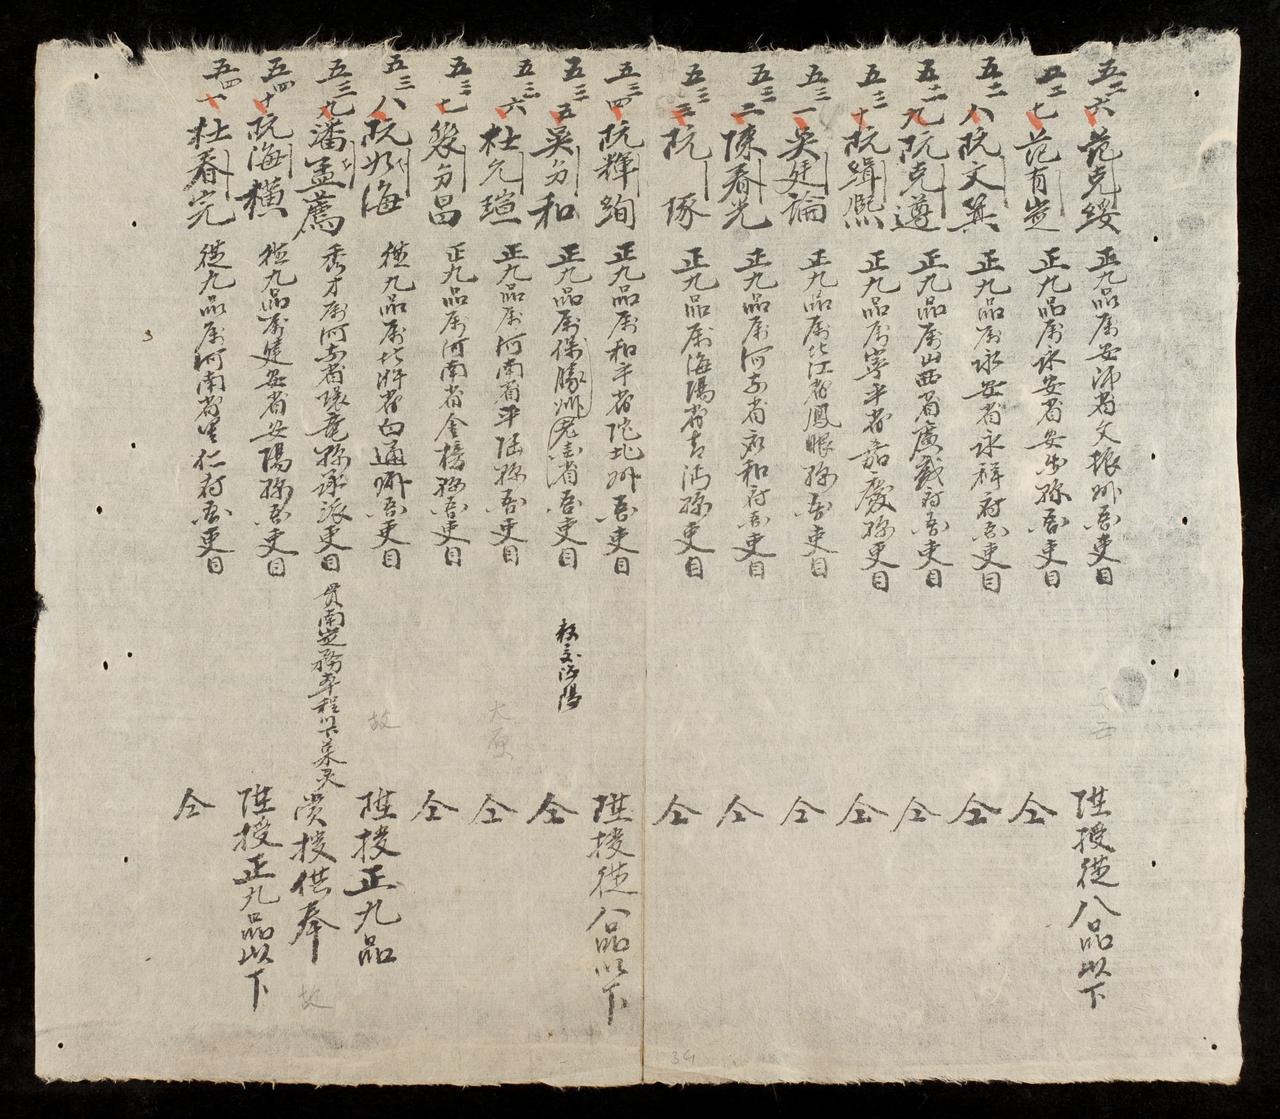 五二六 范克綏 正九品属安沛省文振州吾吏目 陞授從八品以下
五二七 范有 正九品属永安省安 縣吾吏目 仝
五二八 阮文箕 正九品属永安省永祥府吾吏目 仝
五二九 阮克遵 正九品属山西省廣威府吾吏目 仝
五三十 阮緝熙 正九品属寧平省嘉慶縣吏目 仝
五三一 吳廷論 正九品属北江省鳳眼縣吾吏目 仝
五三二 陳春光 正九品属河東省 和府吾吏目 仝
五三三 阮琢 正九品属海陽省青沔縣吏目 仝
五三四 阮輝絢 正九品属和平省陀北州吾吏目 陞授從八品以下
五三五 吳方和 正九品属保勝州老 省吾吏目 海陽 仝
五三六 杜允瑄 正九品属河南省平陸縣吾吏目 仝
五三七 裴方昌 正九品属河南省金榜縣吾吏目 仝
五三八 阮如海 從九品属北 省白通州吾吏目 故 陞授正九品
五三九 潘孟薦 秀才属河東省 縣承派吏目 貫南定務本程 賞授供奉 故
五四十 阮海橫 從九品属建安省安陽縣吾吏目 陞授正九品以下
五四一 杜春完 從九品属河南省里仁府吾吏目 仝
34